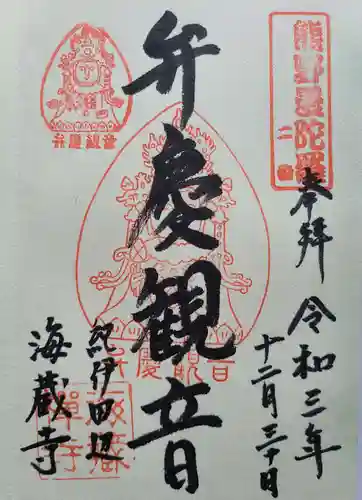 熊野曼陀羅
奉拝
令和三年
十二月三十日
弁慶観音
弁慶観音
弁慶観音
紀伊田辺
海蔵寺